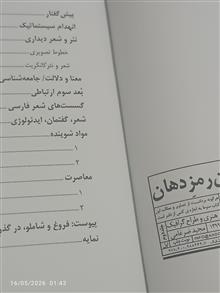 پیش‌گفتار
انهدام سیستماتیک
نثر و شعر دیداری
خطوط تصویری
شعر و نثر کانکریت
معنا و دلالت/ جامعه‌شناسی
بُعد سوم ارتباطی
گسست‌های شعر فارسی
شعر، گفتمان، ایدئولوژی
مواد شوینده
۱
۲
معاصرت
۱
۲
پیوست: فروغ و شاملو، در گذر
نمایه
رمز دهان
هنری و طراح گرافیک:
مجید ضرغامی
16/05/2026 01:43